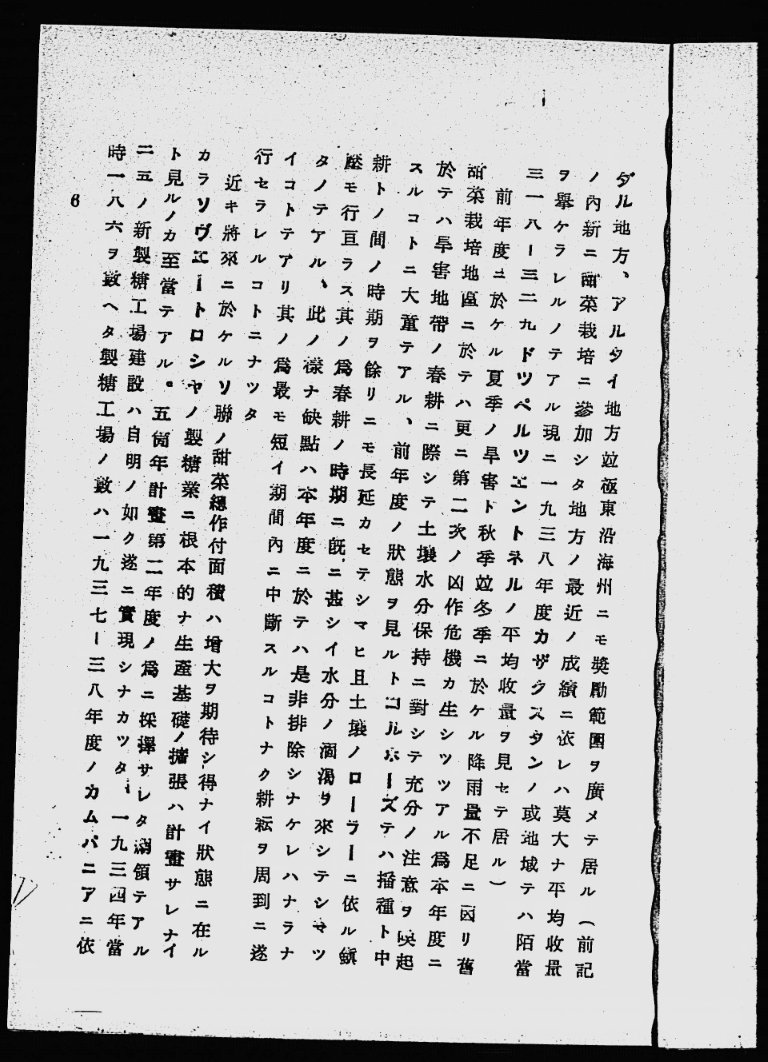 ダル地方、アルタイ地方竝極東沿海州ニモ奬勵範圍ヲ廣メテ居ル（前記
ノ内新ニ甜菜栽培ニ參加シタ地方ノ最近ノ成績ニ依レハ莫大ナ平均收量
ヲ擧ケラレルノテアル現ニ一九三八年度カザクスタンノ或地域テハ陌當
三一八ー三二九ドツペルツエントネルノ平均收量ヲ見セテ居ル）
前年度ニ於ケル夏季ノ旱害ト秋季竝冬季ニ於ケル降雨量不足ニ因リ舊
甜菜栽培地區ニ於テハ更ニ第二次ノ凶作危機カ生シツツアル爲本年度ニ
於テハ旱害地帶ノ春耕ニ際シテ土壤水分保持ニ對シテ充分ノ注意ヲ喚起
スルコトニ大童テアル、前年度ノ狀態ヲ見ルトコルホーズテハ播種ト中
新トノ間ノ時期ヲ餘リニモ長延カセテシマヒ且土壤ノローラーニ依ル鎭
壓モ行亘ラス其ノ爲春耕ノ時期ニ旣ニ甚シイ水分ノ涸渴ヲ來シテシマツ
タノテアル、此ノ樣ナ缺點ハ本年度ニ於テハ是非排除シナケレハナラナ
イコトテアリ其ノ爲最モ短イ期間內ニ中斷スルコトナク耕耘ヲ周到ニ遂
行セラレルコトニナツタ
近キ將來ニ於ケルソ聯ノ甜菜總作付面積ハ增大ヲ期待シ得ナイ狀態ニ在ル
カラソヴエートロシヤノ製糖業ニ根本的ナ生產基礎ノ擴張ハ計畫サレナイ
ト見ルノカ至當テアル。五箇年計畫第二年度ノ爲ニ採擇サレタ綱領テアル
二五ノ新製糖工場建設ハ自明ノ如ク遂ニ實現シナカツタ、一九三四年當
時一八六ヲ數ヘタ製糖工場ノ數ハ一九三七ー三八年度ノカムパニアニ依
6